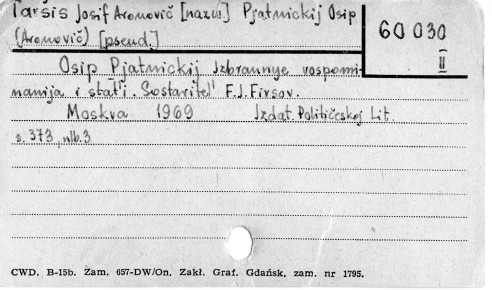 Tarsis Josif Aronovič [nazw.] Pjatnickij Osip
(Aronovič) [pseud.]
60 030
II
Osip Pjatnickij Izbrannye vospomi-
nanija i stat'i. Sostavitel' F.I. Firsov.
Moskva 1969 Izdat. Političeskoj Lit.
s. 373, nlb. 3
CWD. B-15b. Zam. 657-DW/On. Zakł. Graf. Gdańsk, zam. nr 1795.